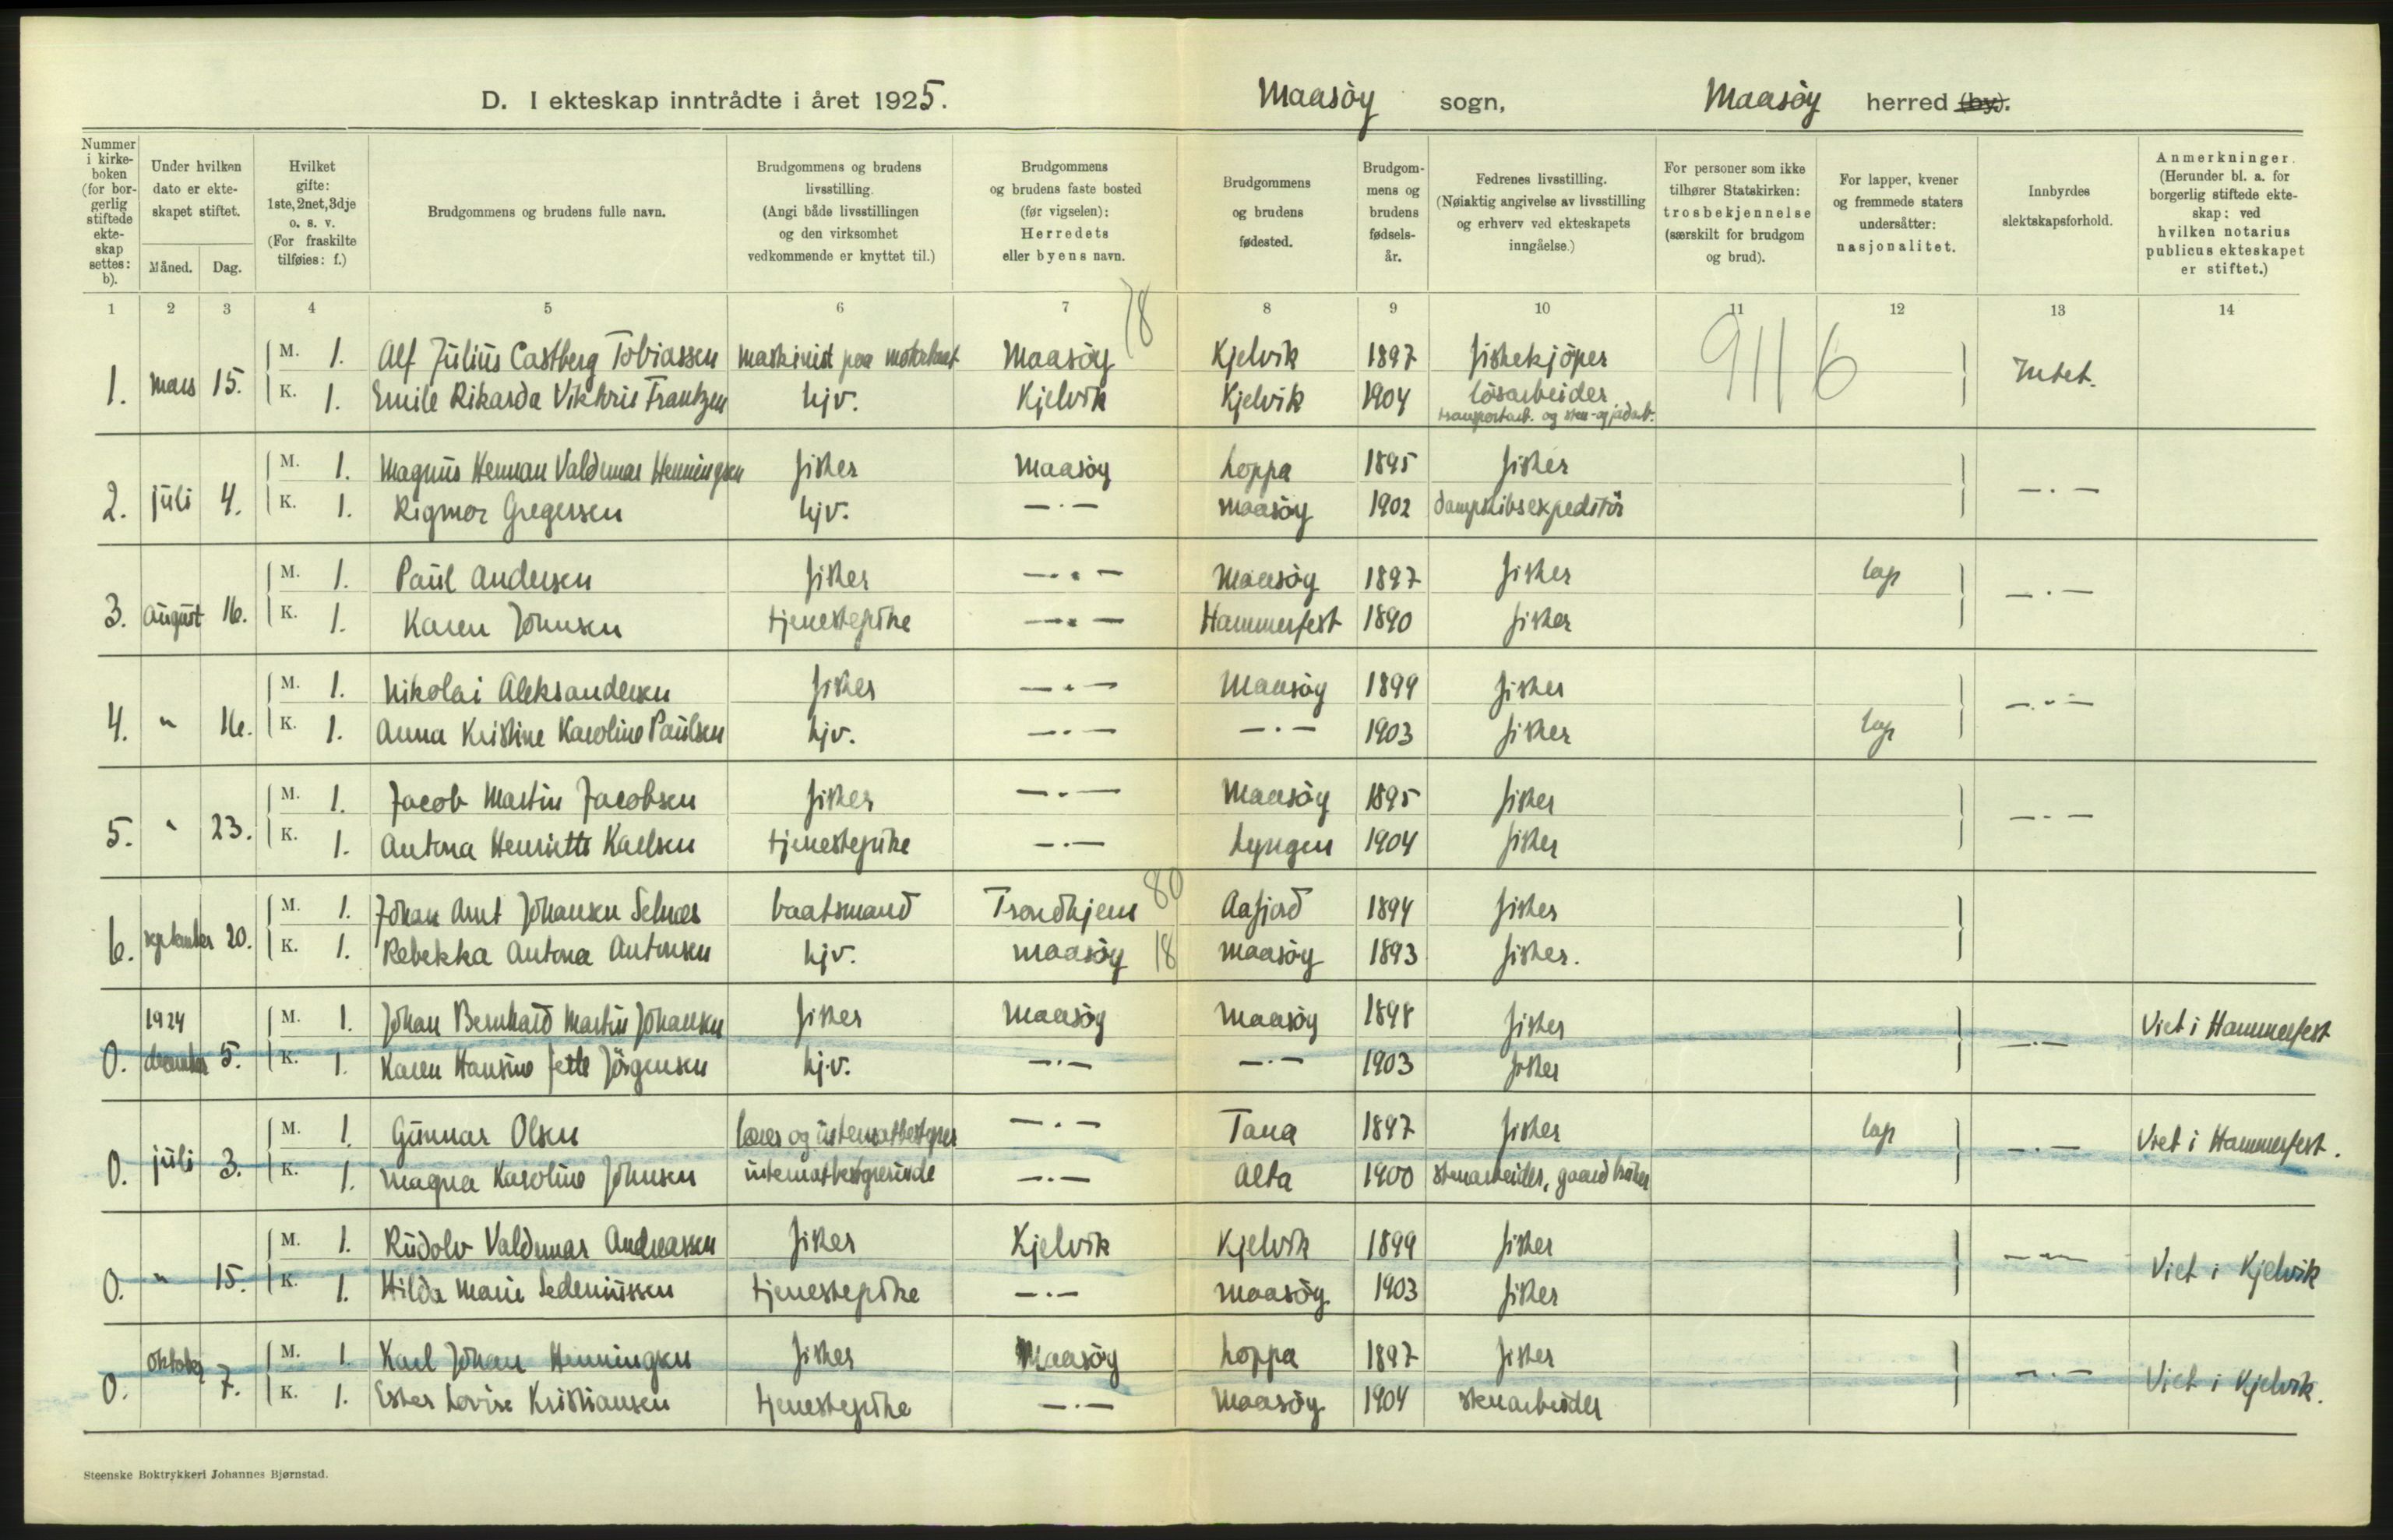 D. I ekteskap inntrådte i året 1925. Maasöy sogn, Maasöy herred (by).
Nummer i kirkeboken (for borgerlig stiftede ekteskap settes: b).
Under hvilken dato er ekteskapet stiftet.
Måned. Dag.
Hvilket gifte: 1ste, 2net, 3dje o. s. v. (For fraskilte tilføies: f.)
Brudgommens og brudens fulle navn.
Brudgommens og brudens livsstilling. (Angi både livsstillingen og den virksomhet vedkommende er knyttet til.)
Brudgommens og brudens faste bosted (før vigselen): Herredets eller byens navn.
Brudgommens og brudens fødested.
Brudgommens og brudens fødselsår.
Fedrenes livsstilling. (Nøiaktig angivelse av livsstilling og erhverv ved ekteskapets inngåelse.)
For personer som ikke tilhører Statskirken: trosbekjennelse (særskilt for brudgom og brud).
For lapper, kvener og fremmede staters undersåtter: nasjonalitet.
Innbyrdes slektskapsforhold.
Anmerkninger. (Herunder bl. a. for borgerlig stiftede ekteskap: ved hvilken notarius publicus ekteskapet er stiftet.)
1 2 3 4 5 6 7 8 9 10 11 12 13 14
78
9116
M. 1. Alf Julius Castberg Tobiassen maskinist paa motorbaat Maasöy Kjelvik 1897 fiskekjöper
1. mars 15. Intet.
K. 1. Emile Rikarda Viktoria Frantzen hjv. Kjelvik Kjelvik 1904 lösarbeider
transportarb. og sten- og jordarb.
M. 1. Magnus Herman Valdemar Henningsen fisker Maasöy Loppa 1895 fisker
2. juli 4. — . —
K. 1. Rigmor Gregersen hjv. — . — Maasöy 1902 dampskibsexpeditör
M. 1. Paul Andersen fisker — . — Maasöy 1897 fisker lap
3. August 16. — . —
K. 1. Karen Johnsen tjenestepike — . — Hammerfest 1890 fisker
M. 1. Nikolai Aleksandersen fisker — . — Maasöy 1899 fisker
4. " 16. — . —
K. 1. Anna Kristine Karoline Paulsen hjv. — . — — . — 1903 fisker lap
M. 1. Jacob Martin Jacobsen fisker — . — Maasöy 1895 fisker
5. " 23. — . —
K. 1. Antona Henriette Karlsen tjenestepike — . — Lyngen 1904 fisker
M. 1. Johan Arnt Johansen Selnæs baatsmand Trondhjem 80 Aafjord 1894 fisker
6. september 20.
K. 1. Rebekka Antona Antonsen hjv. Maasöy 18 Maasöy 1893 fisker.
1924
M. 1. Johan Bernhard Martin Johansen fisker Maasöy Maasöy 1898 fisker
0. desember 5. — . — Viet i Hammerfest
K. 1. Karen Hansine Jette Jörgensen hj.v. — . — — . — 1903 fisker
M. 1. Gunnar Olsen lærer og internatbestyrer — . — Tana 1897 fisker lap
0. juli 3. — . — Viet i Hammerfest.
K. 1. Magna Karoline Johnsen internatbestyrerinde — . — Alta 1900 stenarbeider, gaardbruker
M. 1. Rudolv Valdemar Andreassen fisker Kjelvik Kjelvik 1899 fisker
0. " 15. — " — Viet i Kjelvik
K. 1. Hilda Marie Sedeniussen tjenestepike — . — Maasöy 1903 fisker
M. 1. Karl Johan Henningsen fisker Maasöy Loppa 1897 fisker
0. Oktober 7. — . — Viet i Kjelvik.
K. 1. Ester Lovise Kristiansen tjenestepike — . — Maasöy 1904 stenarbeider
Steenske Boktrykkeri Johannes Bjørnstad.